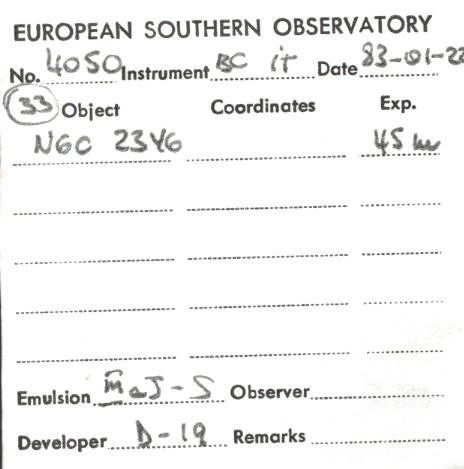 EUROPEAN SOUTHERN OBSERVATORY
No. 4050 Instrument BC it Date 83-01-22
33 Object Coordinates Exp.
NGC 2346 45 m
Emulsion IIIaJ-S Observer
Developer D-19 Remarks